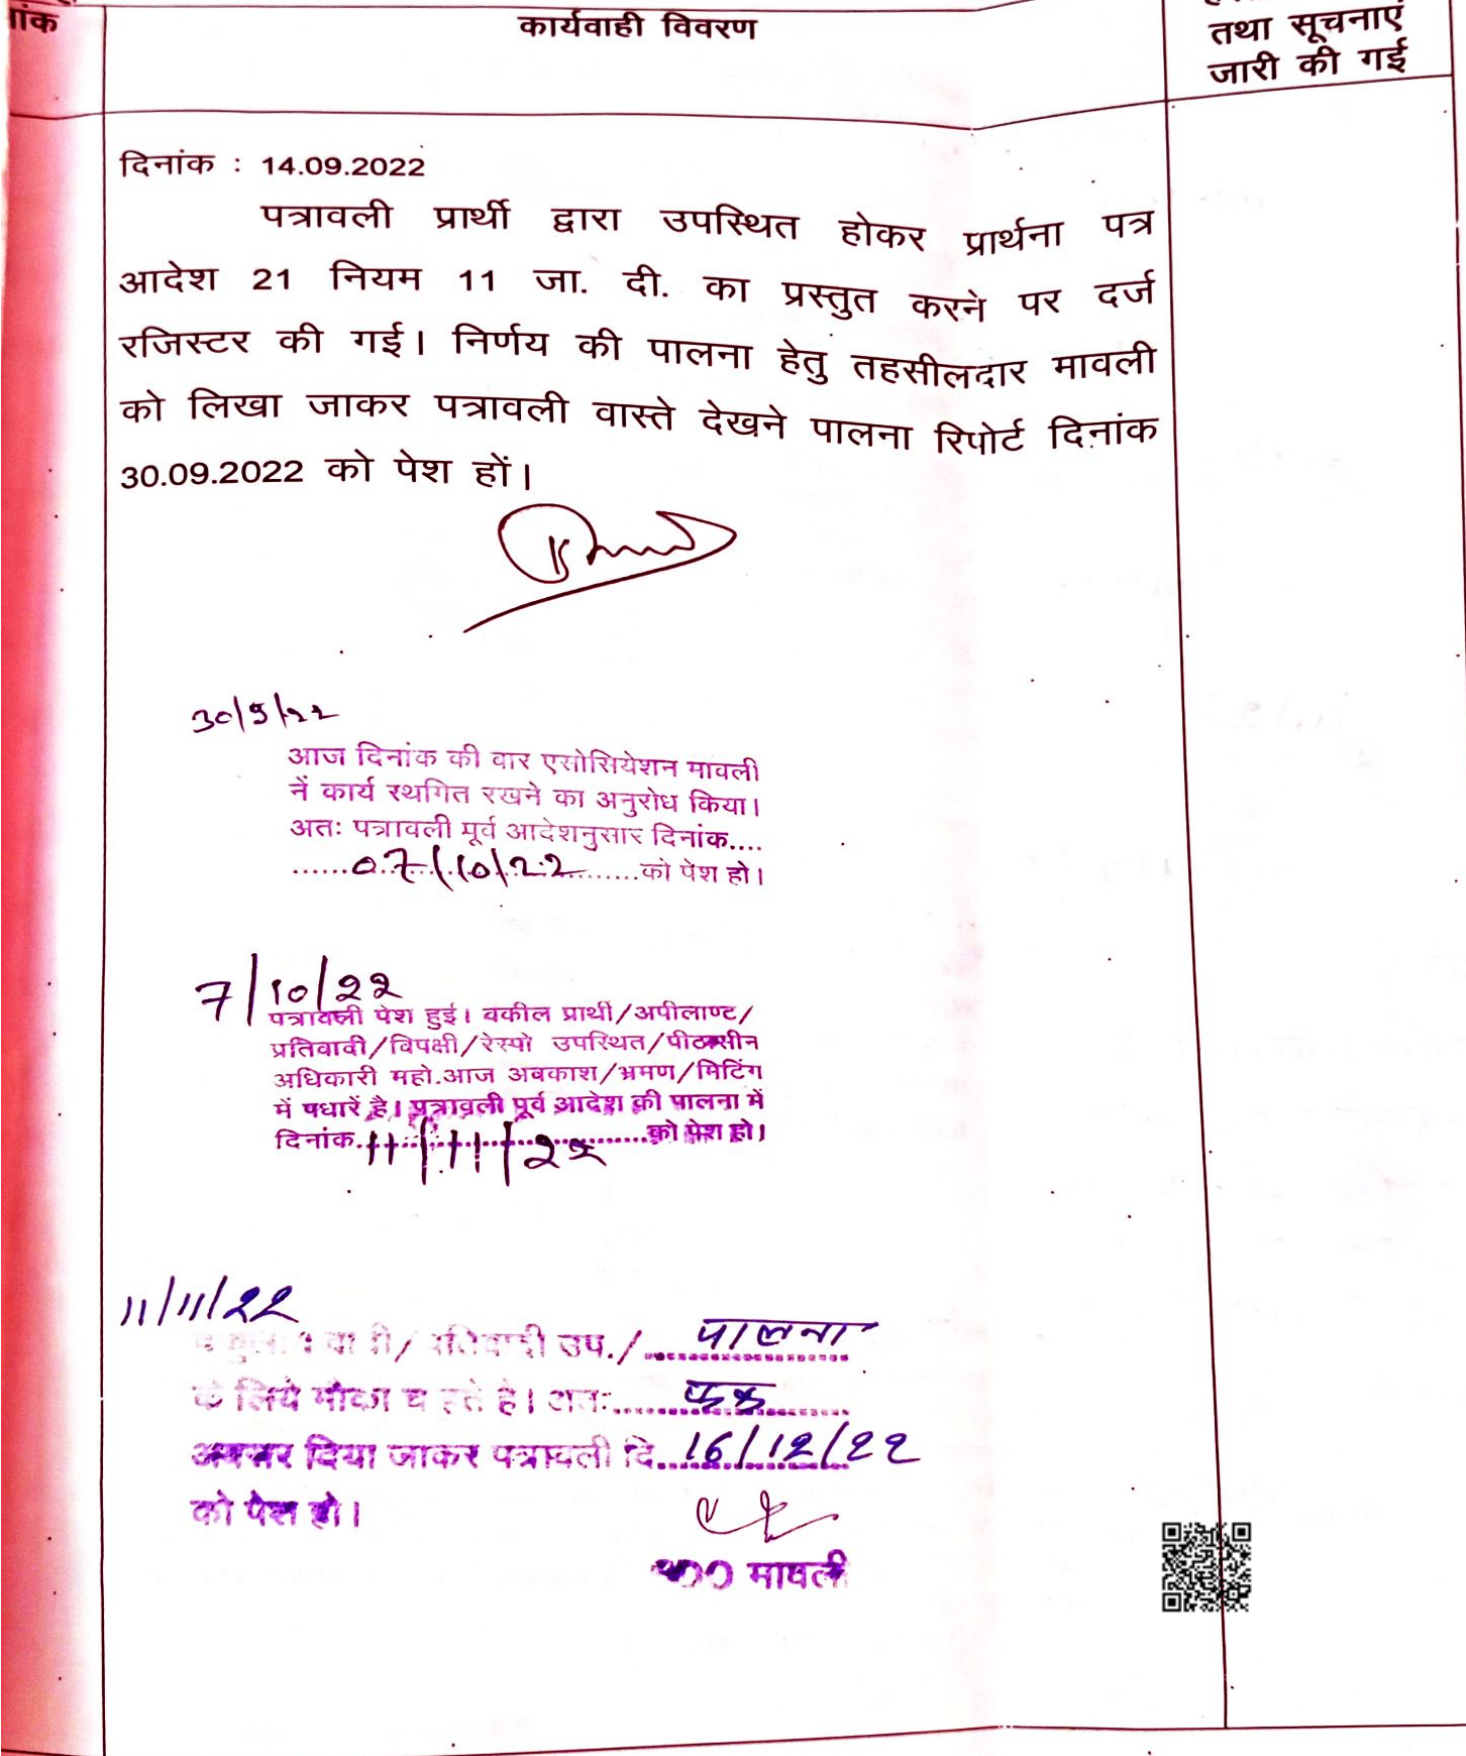 नांक
कार्यवाही विवरण
तथा सूचनाएं
जारी की गई
दिनांक : 14.09.2022
पत्रावली प्रार्थी द्वारा उपस्थित होकर प्रार्थना पत्र
आदेश 21 नियम 11 जा. दी. का प्रस्तुत करने पर दर्ज
रजिस्टर की गई। निर्णय की पालना हेतु तहसीलदार मावली
को लिखा जाकर पत्रावली वास्ते देखने पालना रिपोर्ट दिनांक
30.09.2022 को पेश हों।
30/9/22
आज दिनांक की वार एसोसियेशन मावली
नें कार्य स्थगित रखने का अनुरोध किया।
अतः पत्रावली पूर्व आदेशनुसार दिनांक....
......07/10/22.......को पेश हो।
7/10/22
पत्रावली पेश हुई। वकील प्रार्थी/अपीलाण्ट/
प्रतिवादी/विपक्षी/रेस्पो उपस्थित/पीठासीन
अधिकारी महो.आज अवकाश/भ्रमण/मिटिंग
में पधारें है। पत्रावली पूर्व आदेश की पालना में
दिनांक.11/11/22....को पेश हो।
11/11/22
उप./ पालना
के लिये मौका च हते है। अतः........
अवसर दिया जाकर पत्रावली दि..16/12/22
को पेश हो।
मावली